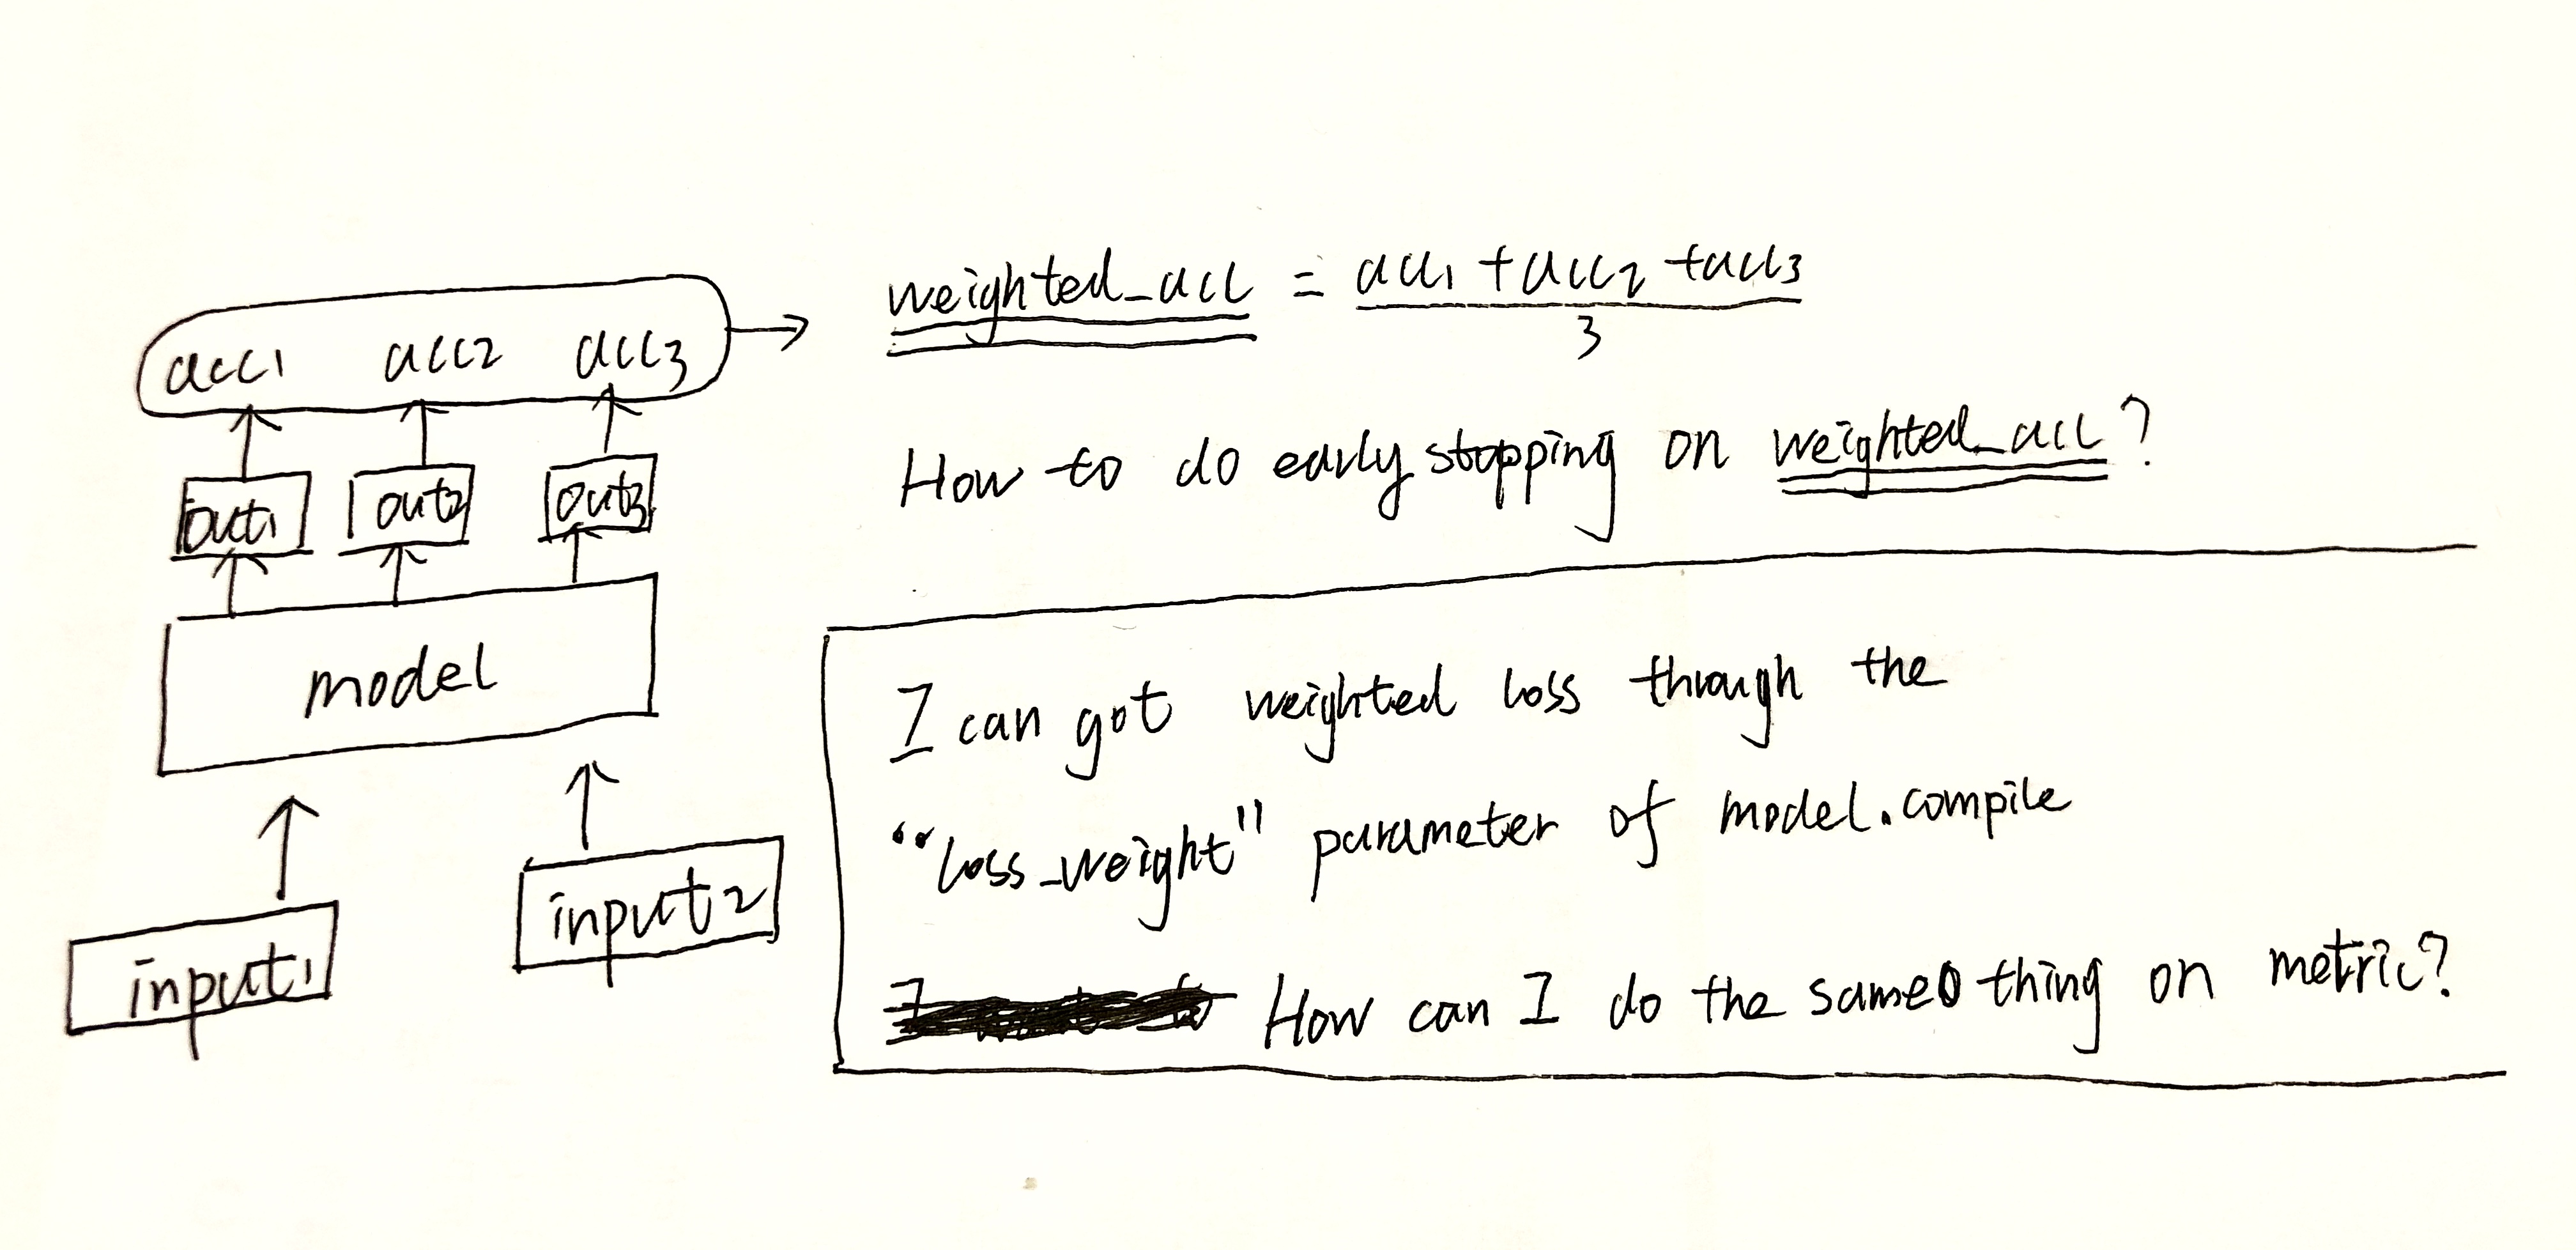 weighted_acc = acc1 + acc2 + acc3
3
acc1 acc2 acc3
How to do early stopping on weighted_acc?
out1 out2 out3
model
I can got weighted loss through the
"loss_weight" parameter of model.compile
input1 input2
How can I do the same thing on metric?